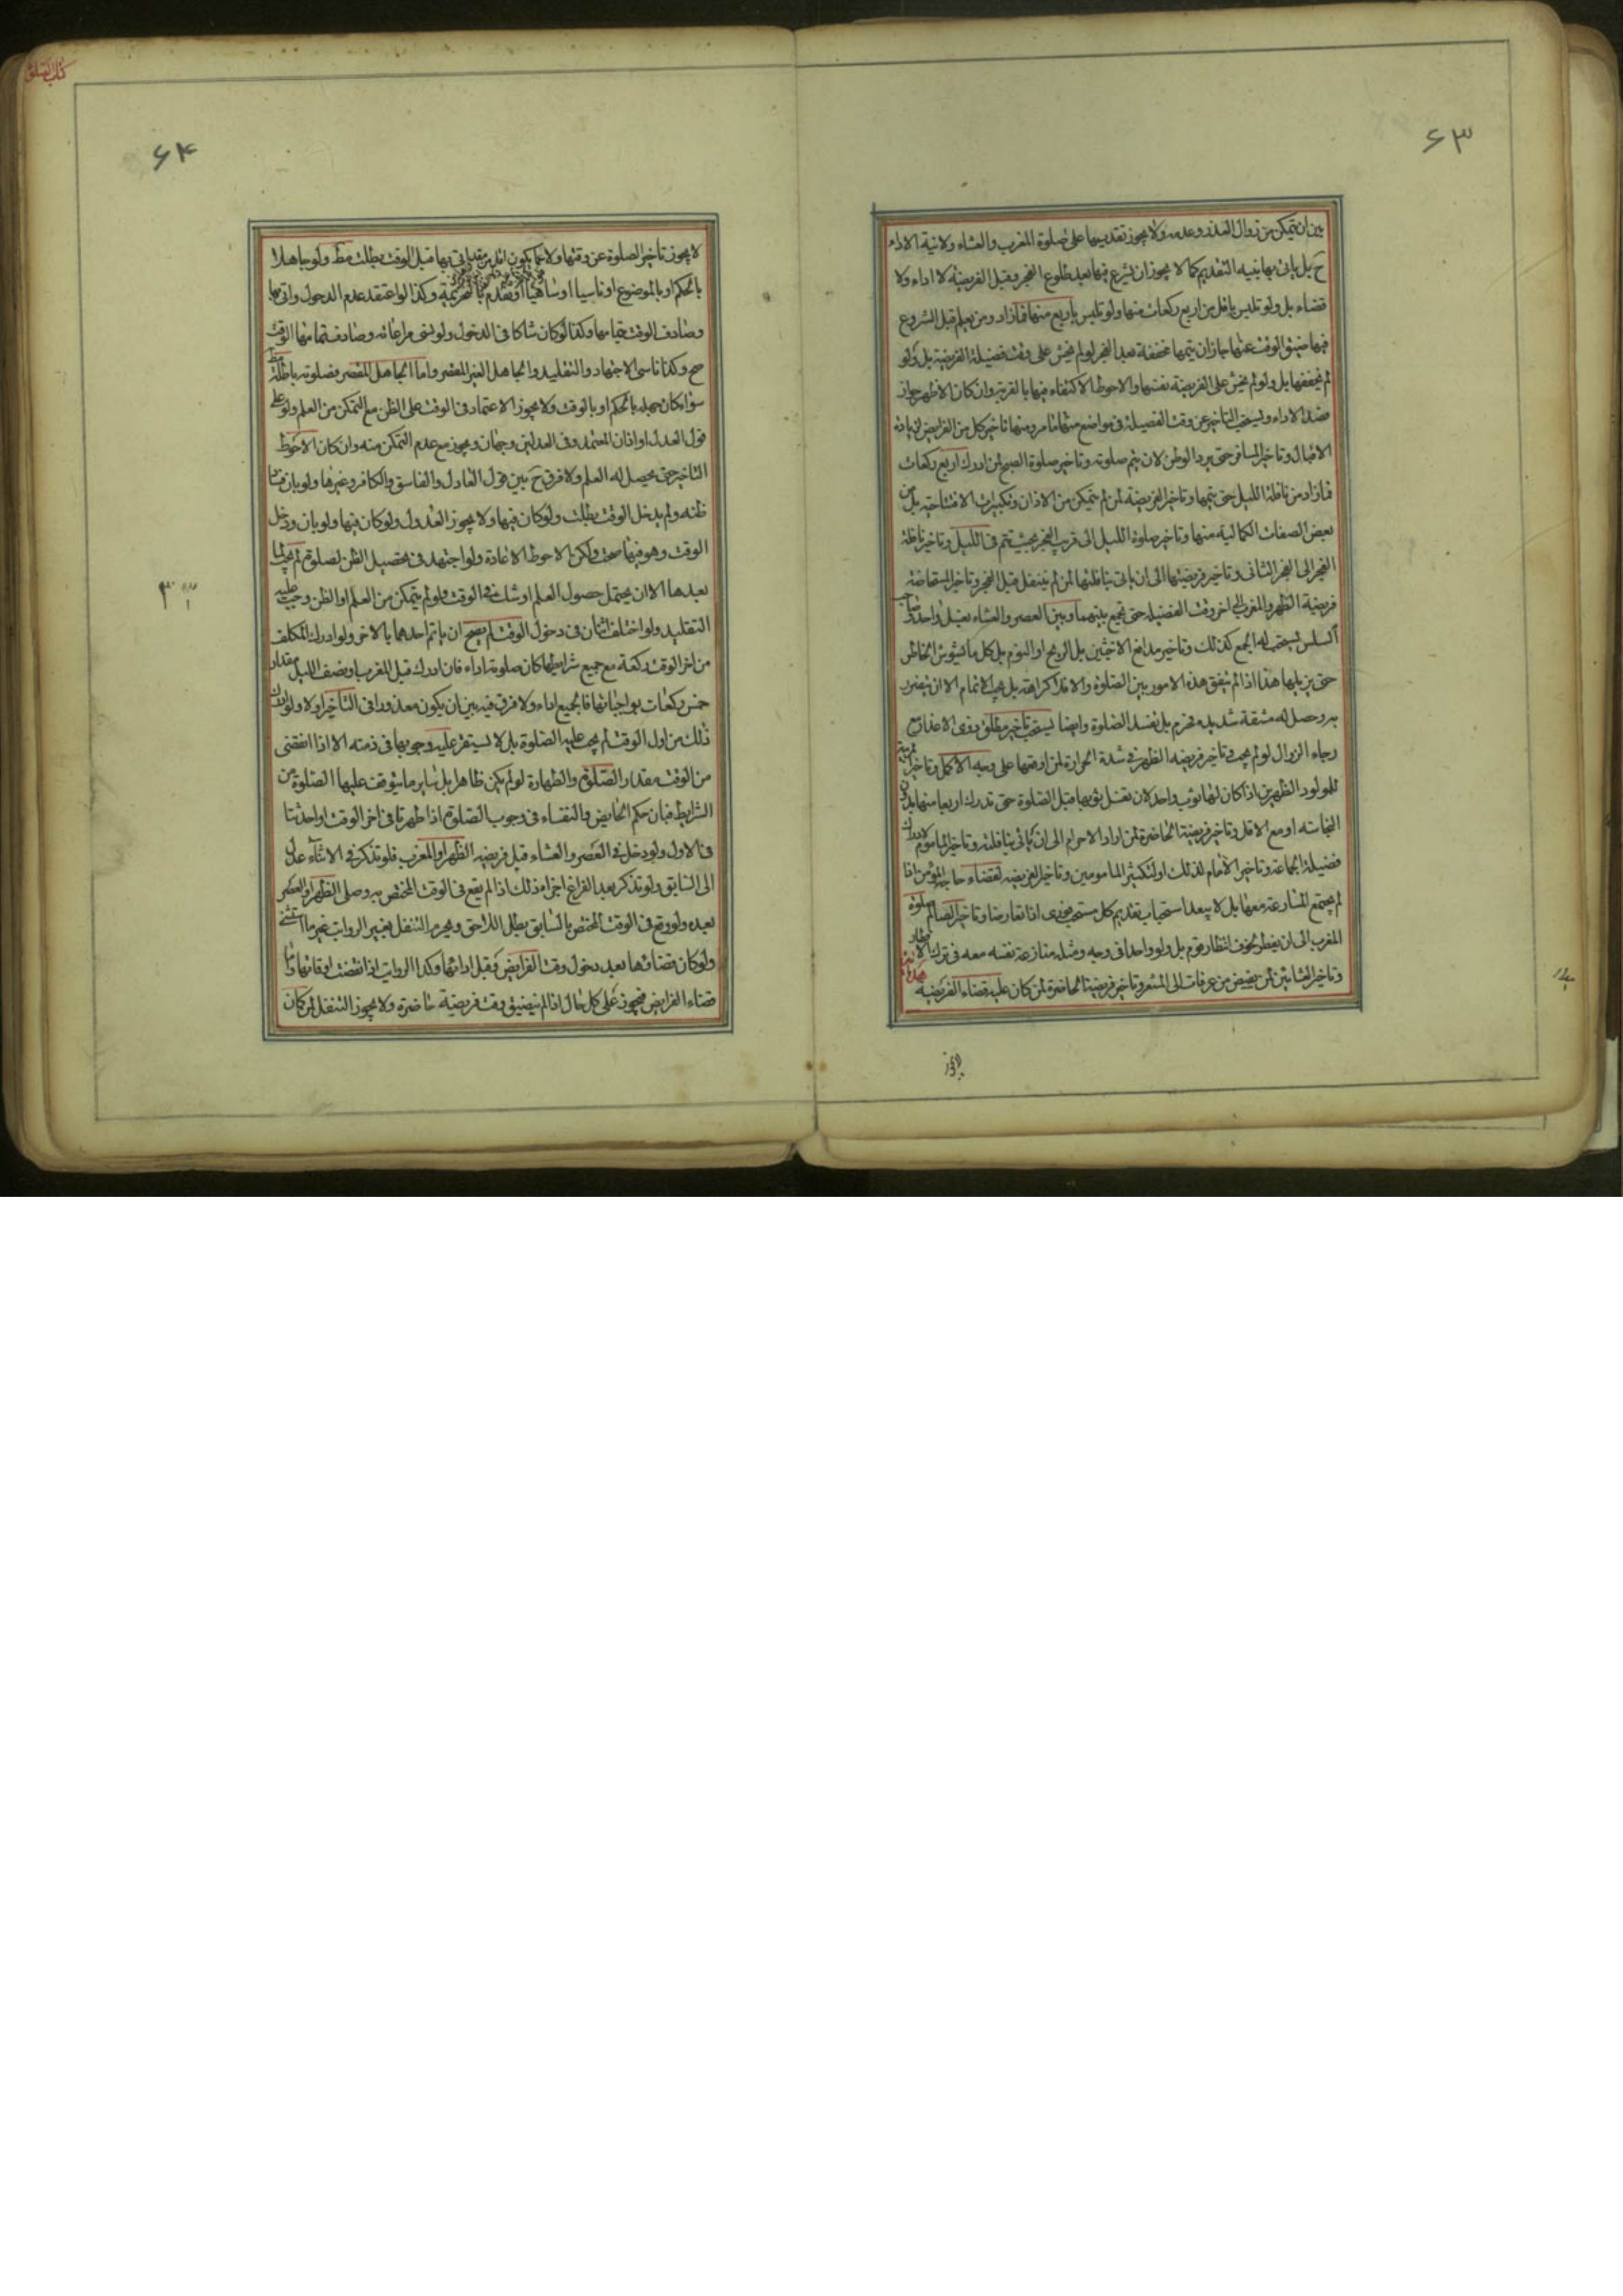 ۶۳
بین ان یتمکن من زوال العذر وعدمه ولا یجوز تقدیمها علی صلوة المغرب والعشاء ولا نیة الاداء
ح بل یاتی بها بنیة التقدیم کما لا یجوز ان یشرع فیها بعد طلوع الفجر وقبل الفریضة لا اداء ولا
قضاء بل ولو تلبس باقل من اربع رکعات منها ولو تلبس باربع منها فمازاد ومن یعلم قبل الشروع
فیها ضیق الوقت عنها جاز ان یتمها مخففة بعد الفجر لو لم یخش علی وقت فضیلة الفریضة بل ولو
لم یخففها بل ولو لم یخش علی الفریضة نفسها والاحوط الاکتفاء فیها بالقربة وان کان الاظهر جواز
قصد الاداء ویستحب التاخیر عن وقت الفضیلة فی مواضع منها ما مر ومنها تاخیر کل من الفرایض لزیادة
الاقبال وتاخیر المسافر حتی یرد الوطن لان یتم صلوته وتاخیر صلوة الصبح لمن ادرك اربع رکعات
فمازاد من نافلة اللیل حتی یتمها وتاخیر الفریضة لمن لم یتمکن من الاذان وتکبیرات الافتتاحیة بل من
بعض الصفات الکمالیة منها وتاخیر صلوة اللیل الی قریب الفجر بحیث یتم فی اللیل وتاخیر نافلة
الفجر الی الفجر الثانی وتاخیر فریضتها الی ان یاتی بنافلتها لمن لم یتنفل قبل الفجر وتاخیر المستحاضة
فریضة الظهر والمغرب الی اخر وقت الفضیلة حتی تجمع بینهما وبین العصر والعشاء بغسل واحد وصاحب
السلس یستحب له الجمع کذلك وتاخیر مدافع الاخبثین بل الریح او النوم بل کل ما یشوش الخاطر
حتی یزیلها هذا اذا لم یتفق هذه الامور بین الصلوة والا فلا کراهة بل یجب الاتمام الا ان یتضرر
به وحصل له مشقة شدیده فحرم بل تفسد الصلوة وایضا یستحب تاخیر مطلق ذوی الاعذار مع
رجاء الزوال لو لم یجب وتاخیر فریضة الظهر فی شدة الحرارة لمن اوقعها علی وجه الاکمل وتاخیر المربیة
للمولود الظهرین اذا کان لها ثوب واحد لان تغسل ثوبها قبل الصلوة حتی تدرك اربعا منها بدون
النجاسة او مع الاقل وتاخیر فریضة الحاضرة لمن اراد الاحرام الی ان یاتی بنافلته وتاخیر الماموم لادراك
فضیلة الجماعة وتاخیر الامام لذلك او لتکثیر المامومین وتاخیر الفریضة لقضاء حاجة المؤمن اذا
لم یجتمع المسارعة معها بل لا یبعد استحباب تقدیم کل مستحب فوری اذا تعارضا وتاخیر الصائم صلوة
المغرب الی ان یفطر لخوف انتظار قوم بل ولو واحدا فی وجه ومثله منازعة نفسه معه فی ترك الانتظار
وتاخیر العشائین لمن یفیض من عرفات الی المشعر وتاخیر فریضة الحاضرة لمن کان علیه قضاء الفریضة
لا یجوز
کتاب الصلوة
۶۴
لا یجوز تاخیر الصلوة عن وقتها ولا بما یکون ازید من قدر یاتی بها قبل الوقت بطلت مط ولو جاهلا
بالحکم او بالموضوع او ناسیا او ساهیا او تقدم بالتحریمة وکذا لو اعتقد عدم الدخول واتی بها
وصادف الوقت بتمامها وکذا لو کان شاکا فی الدخول ولو نسی مراعاته وصادف تمامها الوقت
صح وکذا ناسی الاجتهاد والتقلید والجاهل الغیر المقصر واما الجاهل المقصر فصلوته باطلة مط
سواء کان جهله بالحکم او بالوقت ولا یجوز الاعتماد فی الوقت علی الظن مع التمکن من العلم ولو علی
قول العدل او اذان المعتمد وفی العدلین وجهان ویجوز مع عدم التمکن منه وان کان الاحوط
التاخیر حتی یحصل له العلم ولا فرق ح بین قول العادل والفاسق والکافر وغیرها ولو بان فساد
ظنه ولم یدخل الوقت بطلت ولو کان فیها ولا یجوز العدول ولو کان فیها ولو بان ودخل
الوقت وهو فیها صحت ولکن الاحوط الاعادة ولو اجتهد فی تحصیل الظن لصلوة لم یجب لما
بعدها الا ان یحتمل حصول العلم او شك فی الوقت ولو لم یتمکن من العلم او الظن وجب علیه
التقلید ولو اختلف اثنان فی دخول الوقت لم یصح ان یاتم احدهما بالاخر ولو ادرك المکلف
من اخر الوقت رکعة مع جمیع شرایطها کان صلوته اداء فان ادرك قبل المغرب او نصف اللیل مقدار
خمس رکعات بواجباتها فالجمیع اداء ولا فرق فیه بین ان یکون معذورا فی التاخیر او لا ولو ادرك
ذلك من اول الوقت لم یجب علیه الصلوة بل لا یستقر علیه وجوبها فی ذمته الا اذا انقضی
من الوقت مقدار الصلوة والطهارة لو لم یکن ظاهرا بل سایر ما یتوقف علیها الصلوة من
الشرایط فبان حکم الحایض والنفساء فی وجوب الصلوة اذا طهرتا فی اخر الوقت او احدثتا
فی الاول ولو دخل فی العصر والعشاء قبل فریضة الظهر او المغرب فلو تذکر فی الاثناء عدل
الی السابق ولو تذکر بعد الفراغ اجزاه ذلك اذا لم یقع فی الوقت المختص به وصلی الظهر او العصر
بعده ولو وقع فی الوقت المختص بالسابق بطل اللاحق ویحرم التنفل بغیر الرواتب غیر ما استثنی
ولو کان قضاءها بعد دخول وقت الفرایض وقبل ادائها وکذا الرواتب اذا انقضت اوقاتها واما
قضاء الفرایض فیجوز علی کل حال اذا لم یتضیق وقت فریضة حاضرة ولا یجوز التنفل لمن کان